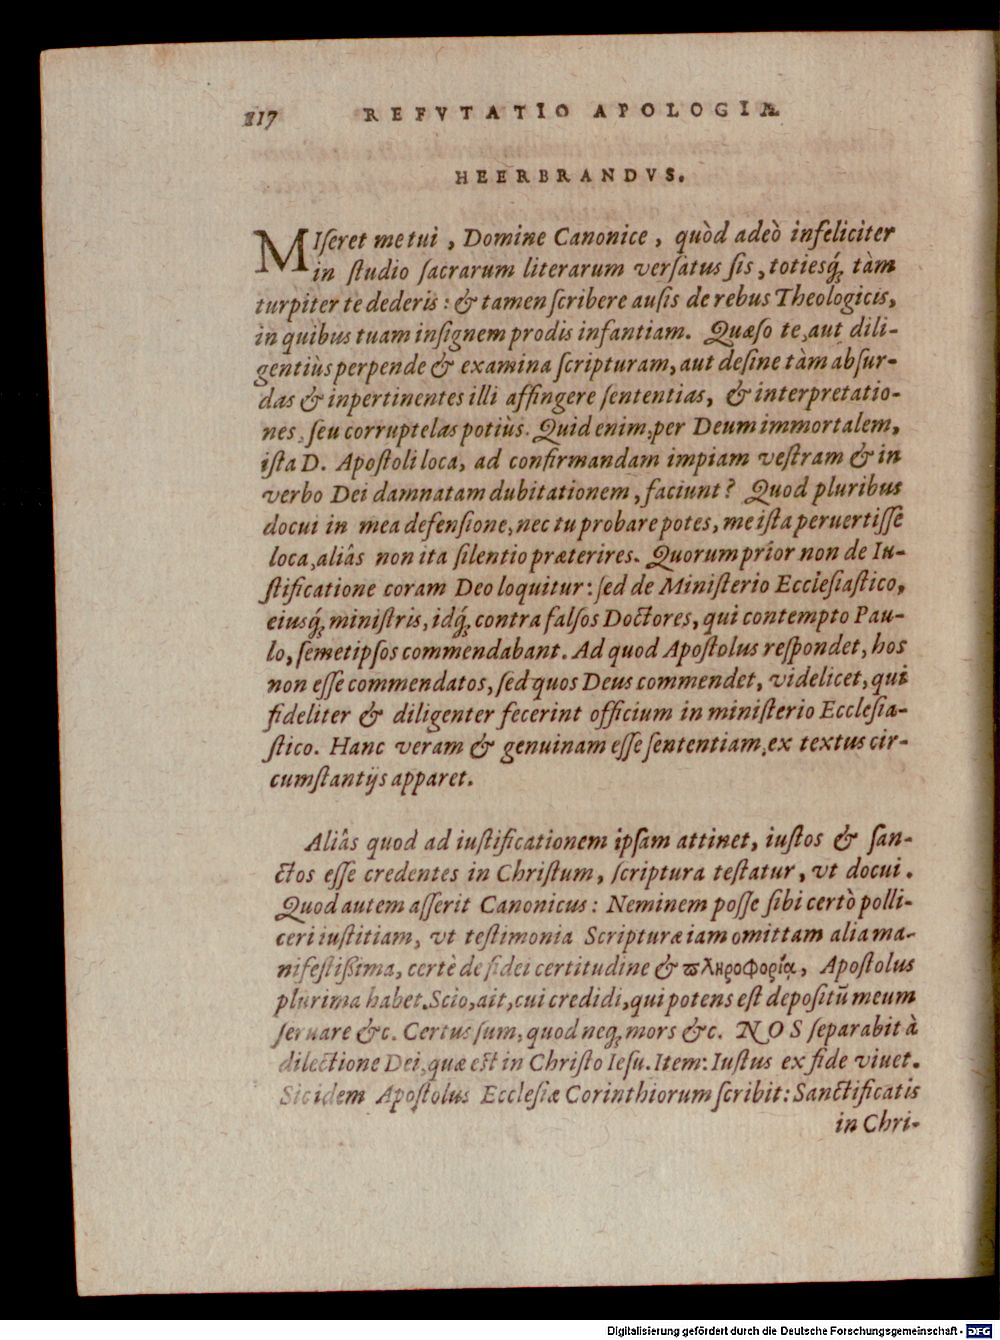 117 REFVTATIO APOLOGIÆ
HEERBRANDVS.
MIſeret me tui , Domine Canonice , quòd adeò infeliciter
in ſtudio ſacrarum literarum verſatus ſis , totiesq́; tàm
turpiter te dederis : & tamen ſcribere auſis de rebus Theologicis,
in quibus tuam inſignem prodis infantiam. Quæſo te, aut dili-
gentiùs perpende & examina ſcripturam, aut deſine tàm abſur-
das & inpertinentes illi affingere ſententias, & interpretatio-
nes, ſeu corruptelas potiùs. Quid enim, per Deum immortalem,
iſta D. Apoſtoli loca, ad confirmandam impiam veſtram & in
verbo Dei damnatam dubitationem, faciunt? Quod pluribus
docui in mea defenſione, nec tu probare potes, me iſta peruertiſſe
loca, aliâs non ita ſilentio præterires. Quorum prior non de Iu-
ſtificatione coram Deo loquitur: ſed de Miniſterio Eccleſiaſtico,
eiusq́; miniſtris, idq́; contra falſos Doctores, qui contempto Pau-
lo, ſemetipſos commendabant. Ad quod Apoſtolus reſpondet, hos
non eſſe commendatos, ſed quos Deus commendet, videlicet, qui
fideliter & diligenter fecerint officium in miniſterio Eccleſia-
ſtico. Hanc veram & genuinam eſſe ſententiam, ex textus cir-
cumſtantijs apparet.
Aliâs quod ad iuſtificationem ipſam attinet, iuſtos & ſan-
ctos eſſe credentes in Chriſtum, ſcriptura teſtatur, vt docui.
Quod autem aſſerit Canonicus: Neminem poſſe ſibi certò polli-
ceri iuſtitiam, vt teſtimonia Scripturæ iam omittam alia ma-
nifeſtißima, certè de fidei certitudine & ϖληροφορίᾳ, Apoſtolus
plurima habet. Scio, ait, cui credidi, qui potens eſt depoſitū meum
ſeruare &c. Certus ſum, quod neq; mors &c. NOS ſeparabit à
dilectione Dei, quæ est in Chriſto Ieſu. Item: Iuſtus ex fide viuet.
Sic idem Apoſtolus Eccleſiæ Corinthiorum ſcribit: Sanctificatis
in Chri-
Digitalisierung gefördert durch die Deutsche Forschungsgemeinschaft - DFG